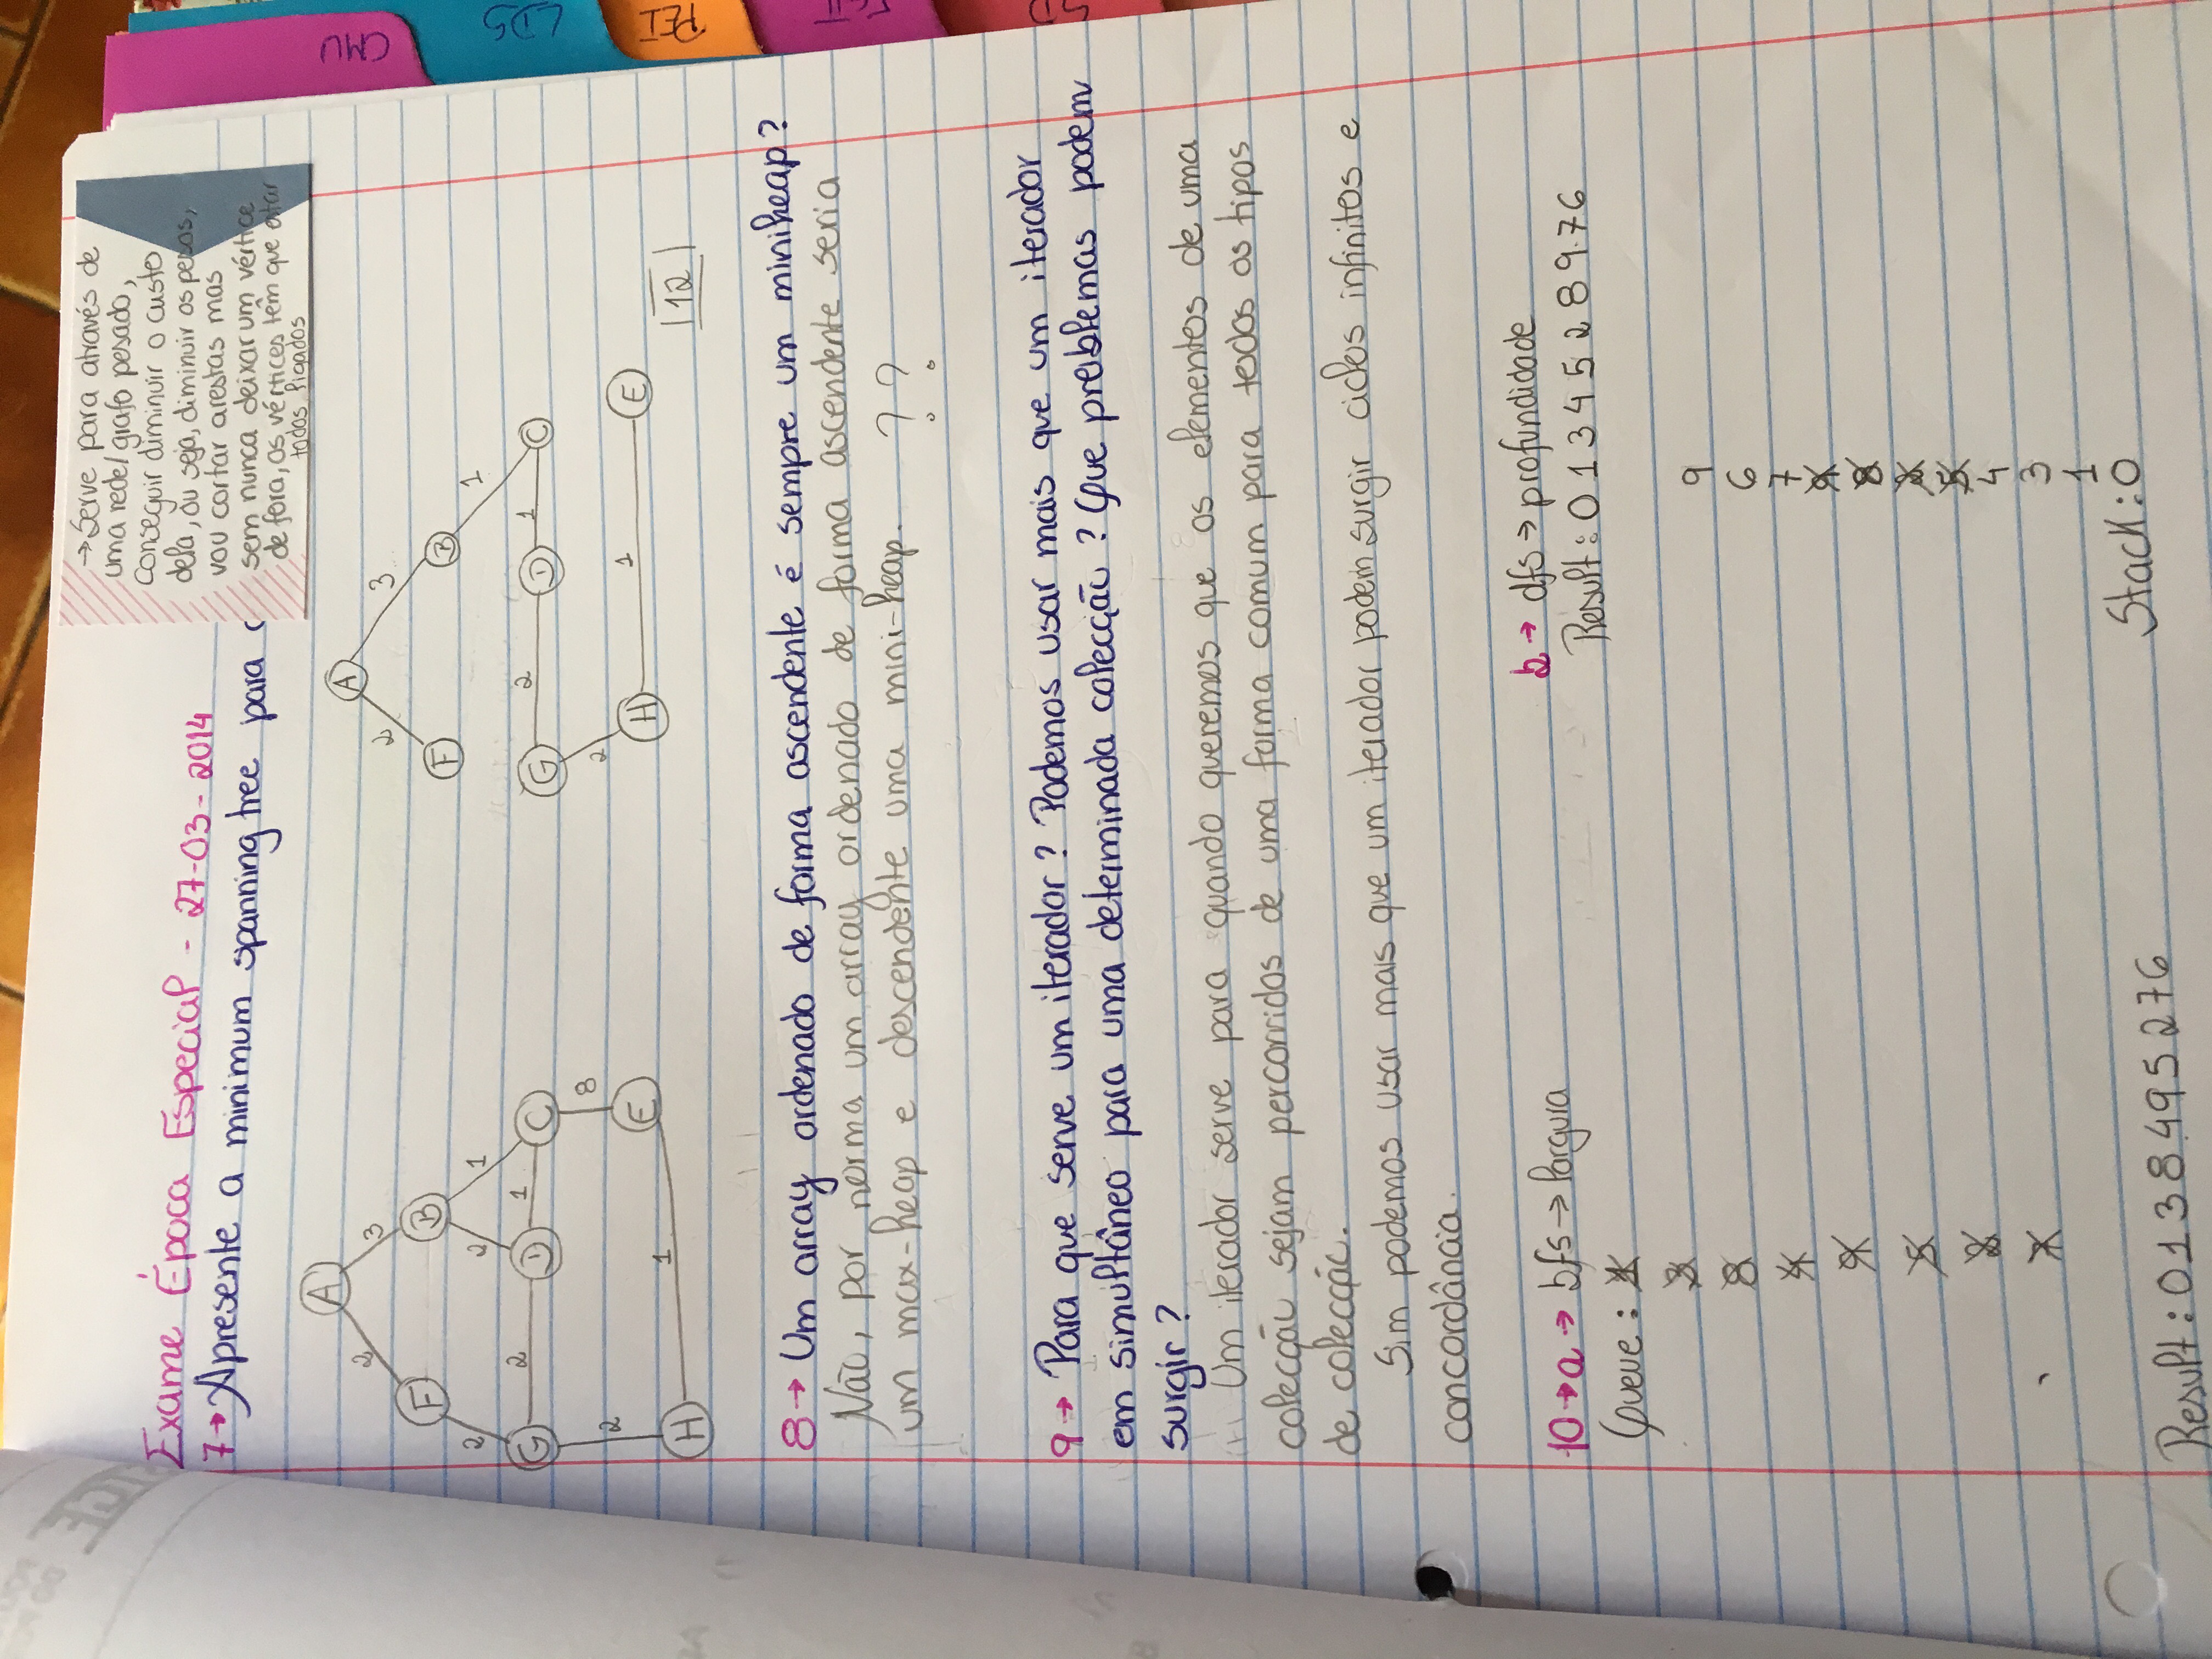 Exame Época Especial - 27-03-2014
7→ Apresente a minimum spanning tree para
→ Serve para através de
uma rede/grafo pesado,
conseguir diminuir o custo
dela, ou seja, diminuir os pesos,
vou cortar arestas mas
sem nunca deixar um vértice
de fora, os vértices têm que estar
todos ligados
A
2 3
F B
2 2 1
G 2 D 1 C
2 8
E
1
H
A
2 3
F B
1
G 2 D 1 C
2
H 1 E
|12|
8→ Um array ordenado de forma ascendente é sempre um miniheap?
Não, por norma um array ordenado de forma ascendente seria
um max-heap e descendente uma mini-heap. ??
9→ Para que serve um iterador? Podemos usar mais que um iterador
em simultâneo para uma determinada colecção? Que problemas podem
surgir?
Um iterador serve para quando queremos que os elementos de uma
colecção sejam percorridos de uma forma comum para todos os tipos
de colecção.
Sim podemos usar mais que um iterador podem surgir ciclos infinitos e
concordância.
10→a→ bfs→largura
Queue: 1
3
8
4
9
5
2
7
Result: 0138495276
b→ dfs→profundidade
Result: 0 1 3 4 5 2 8 9.7 6
9
6
7
9
8
2
5
4
3
1
Stack: 0
CMU
LDS
PEI
SD